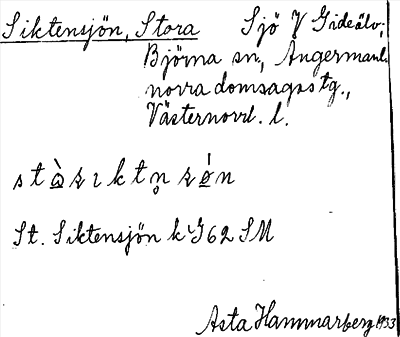 Siktensjön, Stora Sjö V Gideälv;
Björna sn, Ångermanl.
norra domsagas tg.,
Västernorrl. l.
St. Siktensjön k G 62 SM
Asta Hammarberg 1933